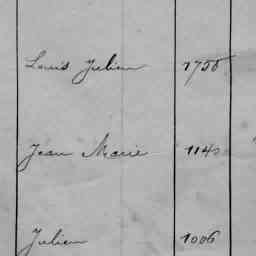 Louis Julien 1756
Jean Marie 1140
Julien 1006